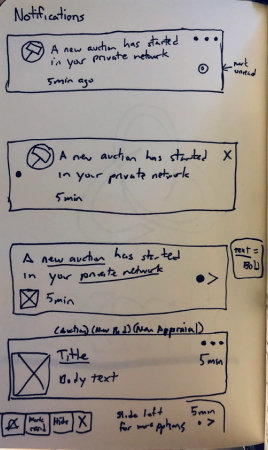 Notifications
A new auction has started
in your private network
5min ago
mark
unread
A new auction has started
in your private network
5min
X
A new auction has started
in your private network
5min
text =
Bold
(Auction) (New Bid) (New Appraisal)
Title
5min
Body text
Mark
read
Hide
X
slide left
for more options
5min